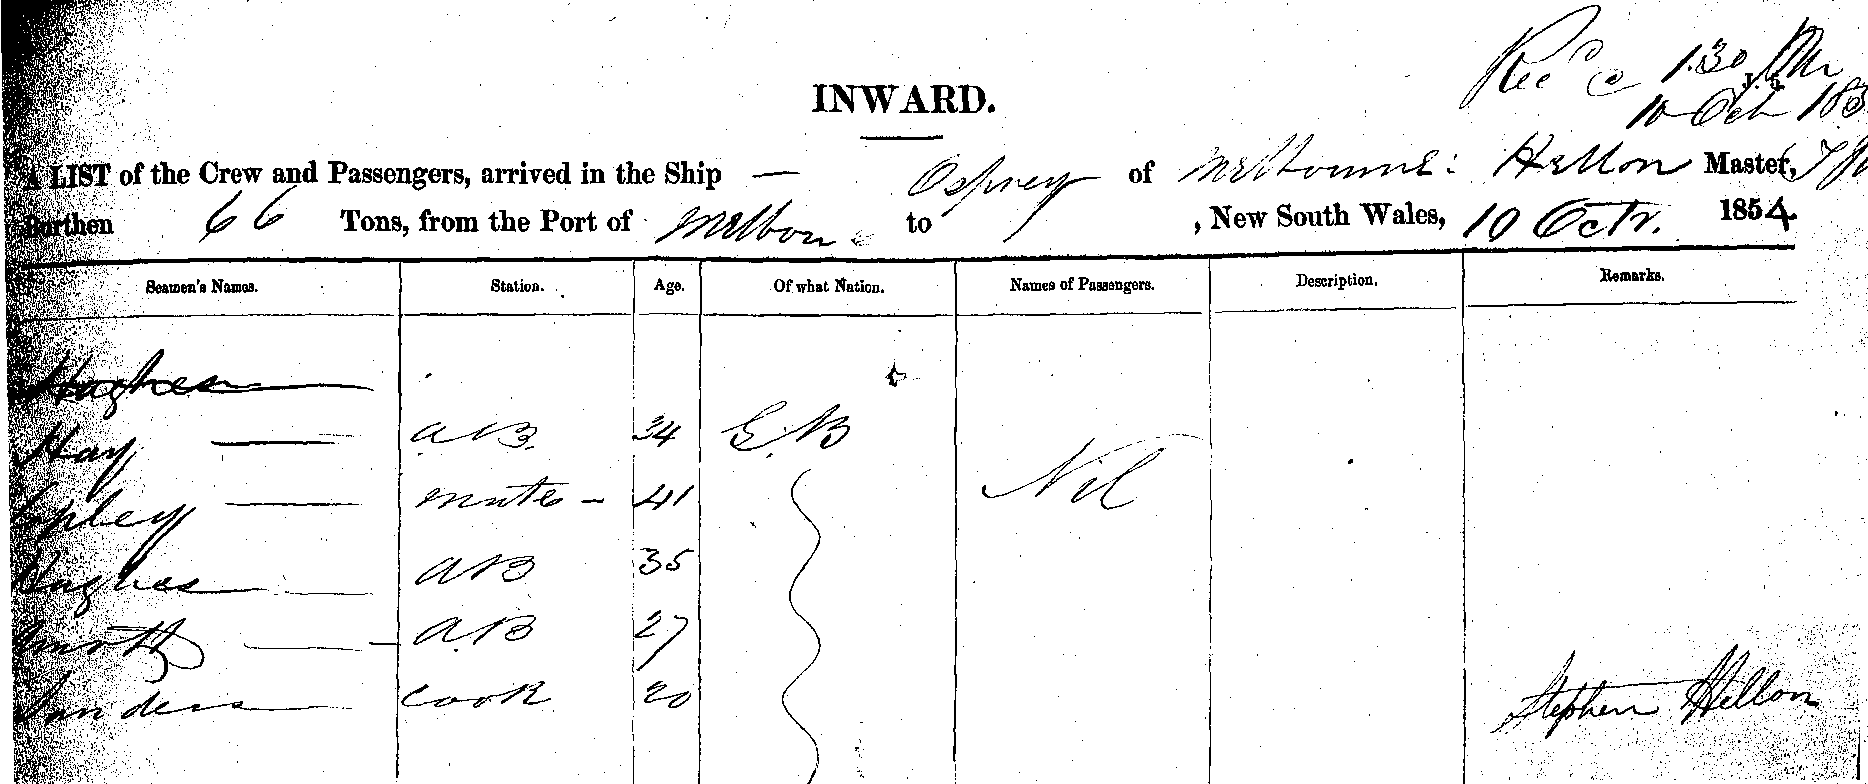 Rec'd 1.30 PM
10 Oct 185
INWARD.
A LIST of the Crew and Passengers, arrived in the Ship — Osprey of Melbourne: Hellon Master,
Burthen 66 Tons, from the Port of Melbourne to , New South Wales, 10 Octr. 1854
Seamen's Names. Station. Age. Of what Nation. Names of Passengers. Description. Remarks.
Hughes
Hay A.B. 34 G.B Nil
mate - 41
Hughes AB 35
A.B 27
Sanders cook 20
Stephen Hellon